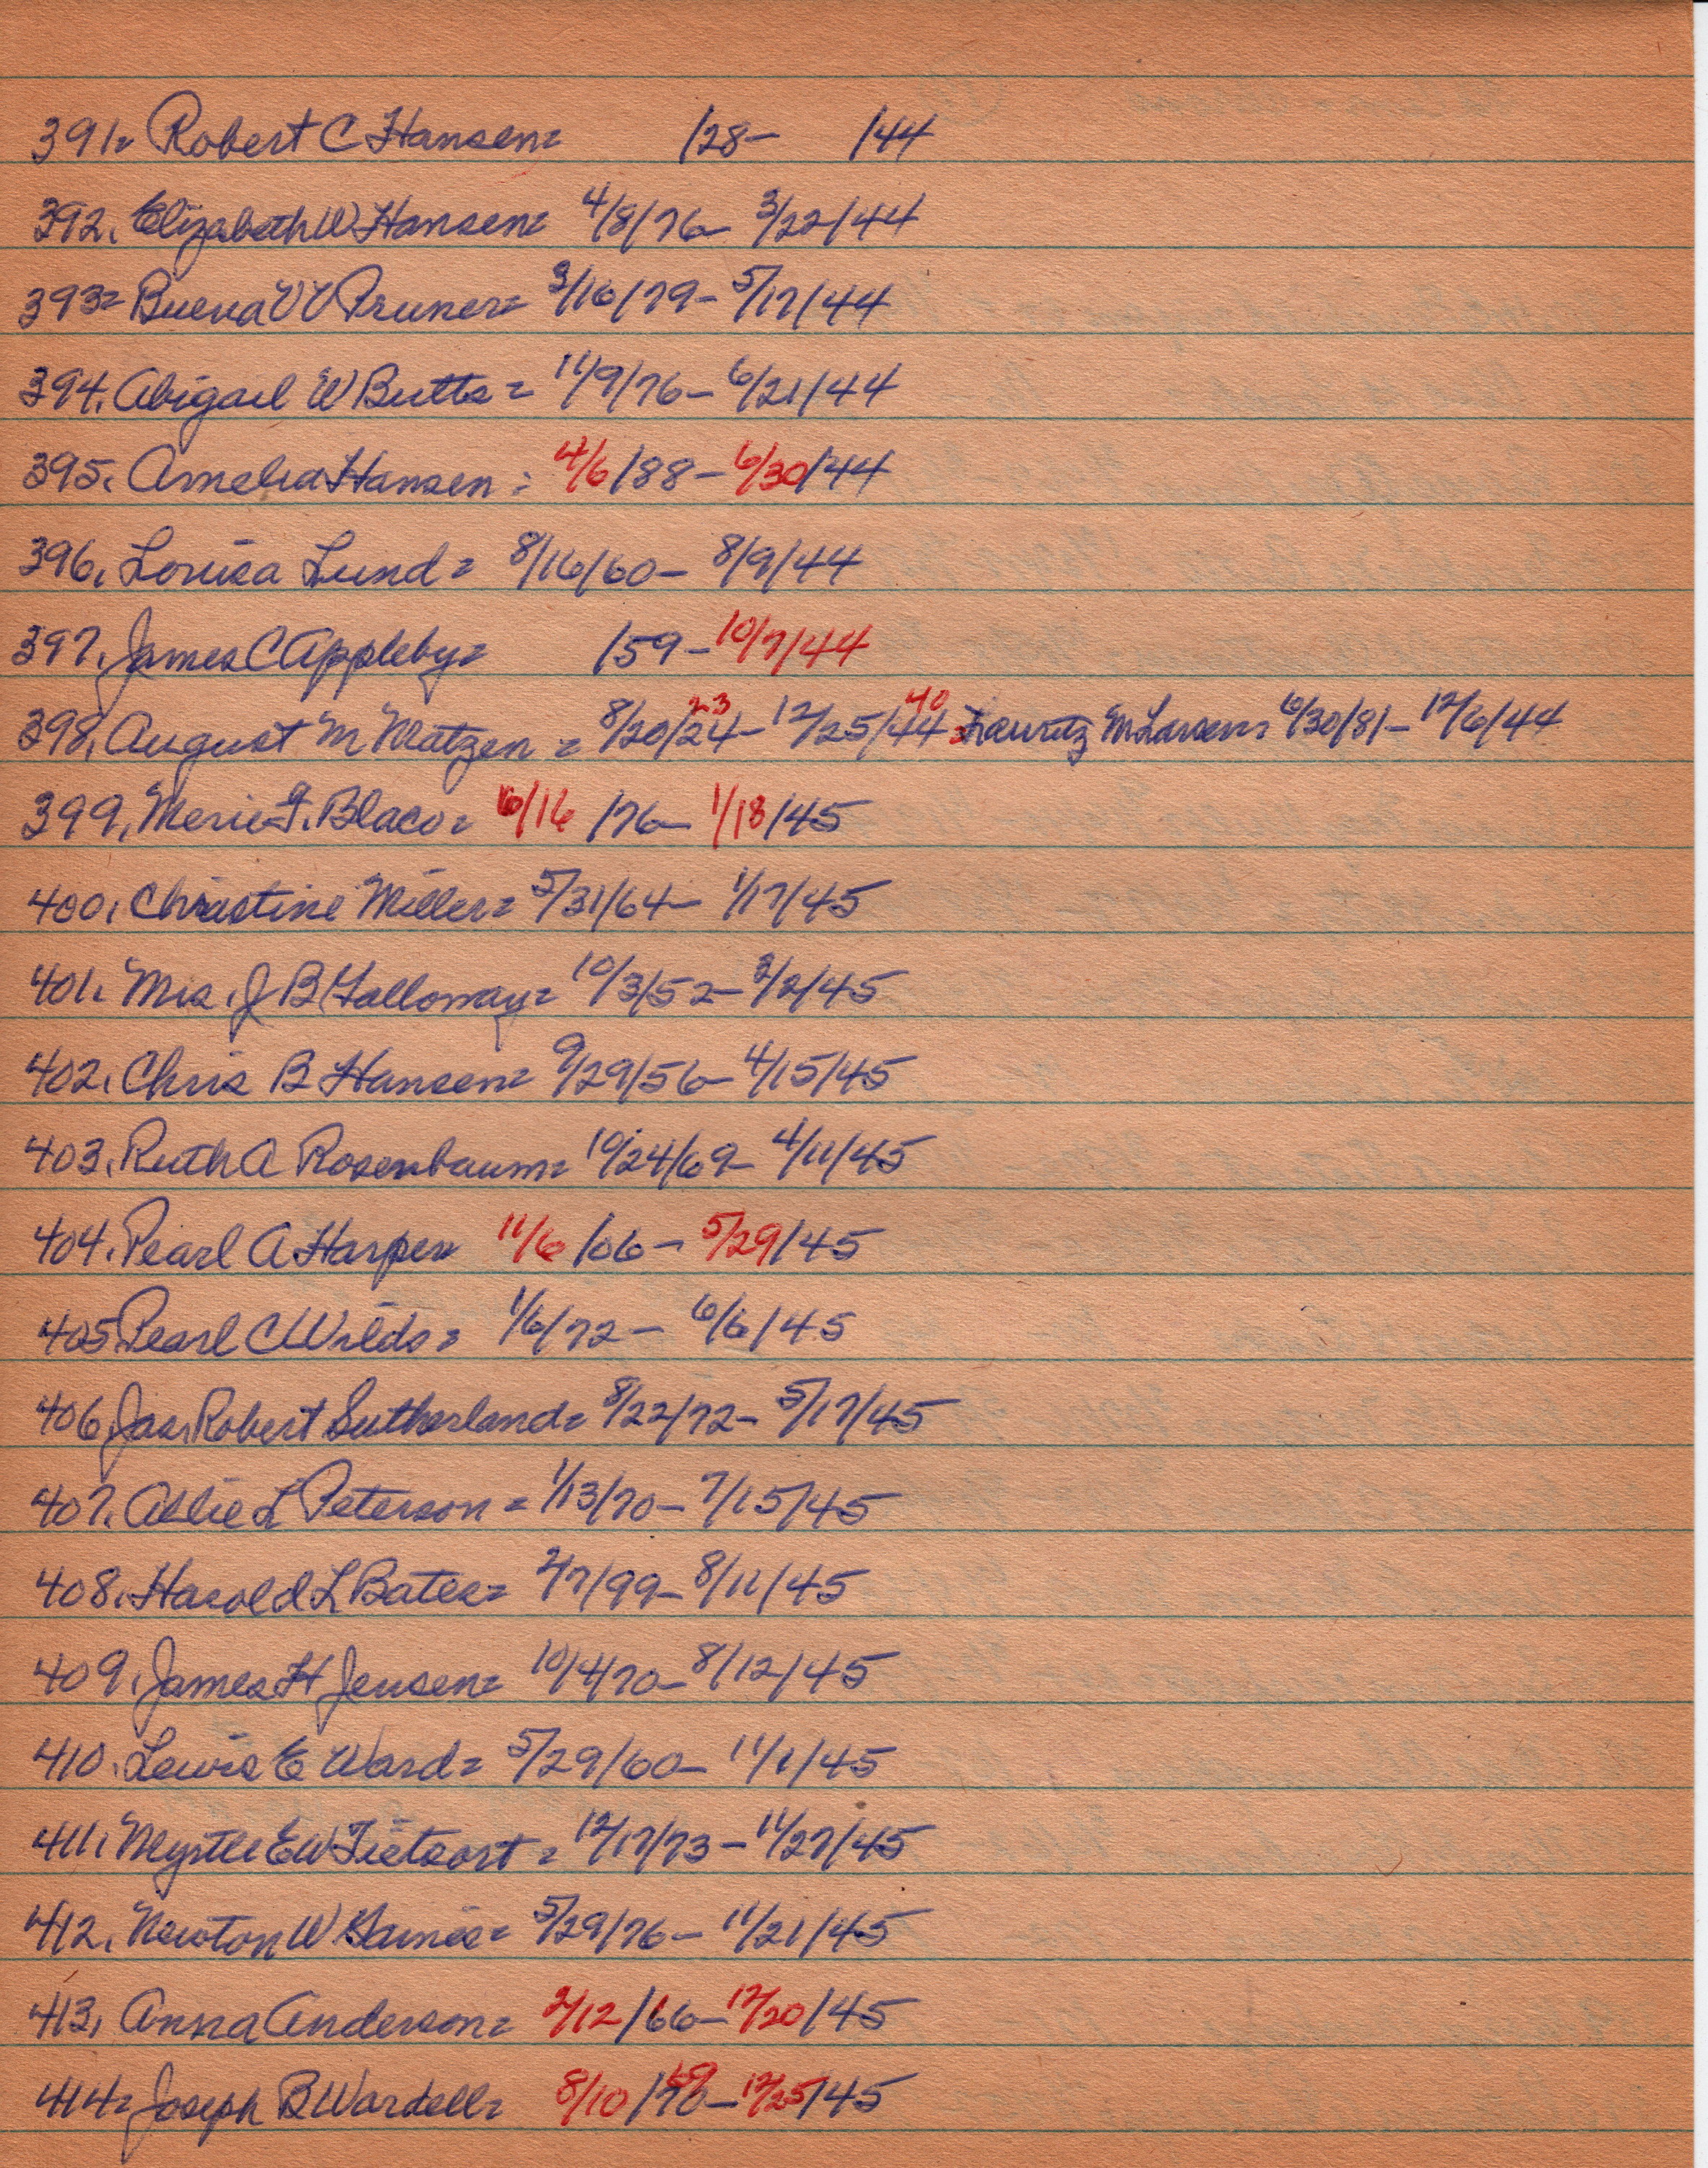 391= Robert C Hansen= /28- /44
392. Elizabeth W Hansen= 4/8/76- 3/22/44
393= Buena V V Pruner= 3/16/79- 5/17/44
394. Abigail W Butts= 11/9/76- 6/21/44
395. Amelia Hansen= 4/6/88- 6/30/44
396. Louisa Lund= 8/16/60- 8/9/44
397. James C Appleby= /59- 10/7/44
23 40
398. August M Matzen= 8/20/24- 12/25/44 M Larsen= 6/30/81- 12/6/44
399. F. Blaco= 6/16 /76- 1/18/45
400. Christine Miller= 5/31/64- 1/17/45
401. Mrs. J B Galloway= 10/3/52- 3/2/45
402. Chris B Hansen= 9/29/56- 4/15/45
403. Ruth A Rosenbaum= 10/24/69- 4/11/45
404. Pearl A Harper 11/6 /06- 5/29/45
405. Pearl C Wilds= 1/6/72- 6/6/45
406. Jas. Robert Sutherland= 8/22/72- 5/17/45
407. Allie L Peterson= 1/13/70- 7/15/45
408. Harold L Bates= 2/7/99- 8/11/45
409. James H Jensen= 10/4/70- 8/12/45
410. Lewis E Ward= 5/29/60- 11/1/45
411. Myrtle E W Tietsort= 12/17/73- 11/27/45
412. Newton W Gaines= 5/29/76- 11/21/45
413. Anna Anderson= 2/12/66- 12/20/45
414= Joseph B Wardell= 8/10 - 12/25/45